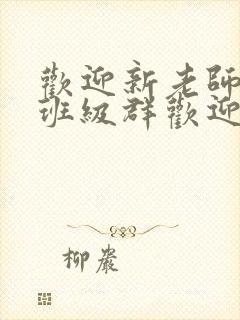 歡迎新老師
班級群歡迎
柳巖